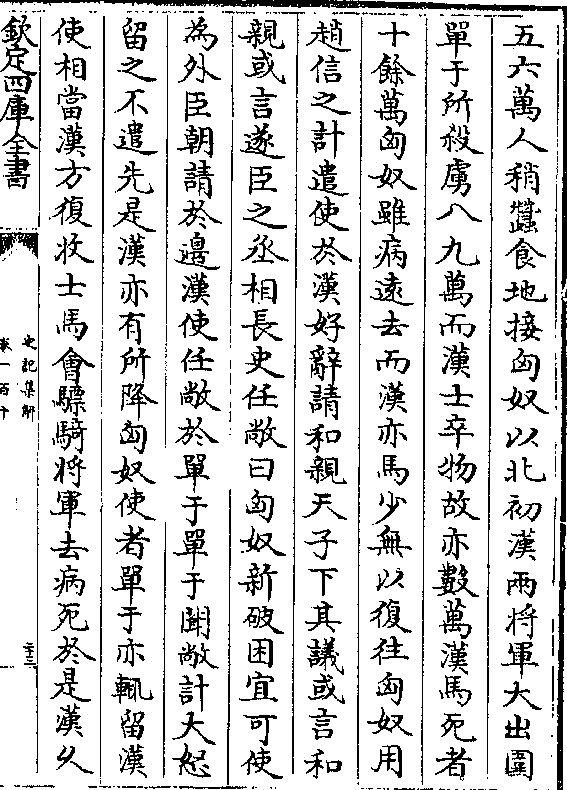 五六萬人稍蠶食地接匈奴以北初漢兩將軍大出圍
單于所殺虜八九萬而漢士卒物故亦數萬漢馬死者
十餘萬匈奴雖病遠去而漢亦馬少無以復往匈奴用
趙信之計遣使於漢好辭請和親天子下其議或言和
親或言遂臣之丞相長史任敞曰匈奴新破困宜可使
為外臣朝請於邊漢使任敞於單于單于聞敞計大怒
留之不遣先是漢亦有所降匈奴使者單于亦輒留漢
使相當漢方復收士馬會驃騎將軍去病死於是漢久
欽定四庫全書
史記集解
卷一百十
二十三